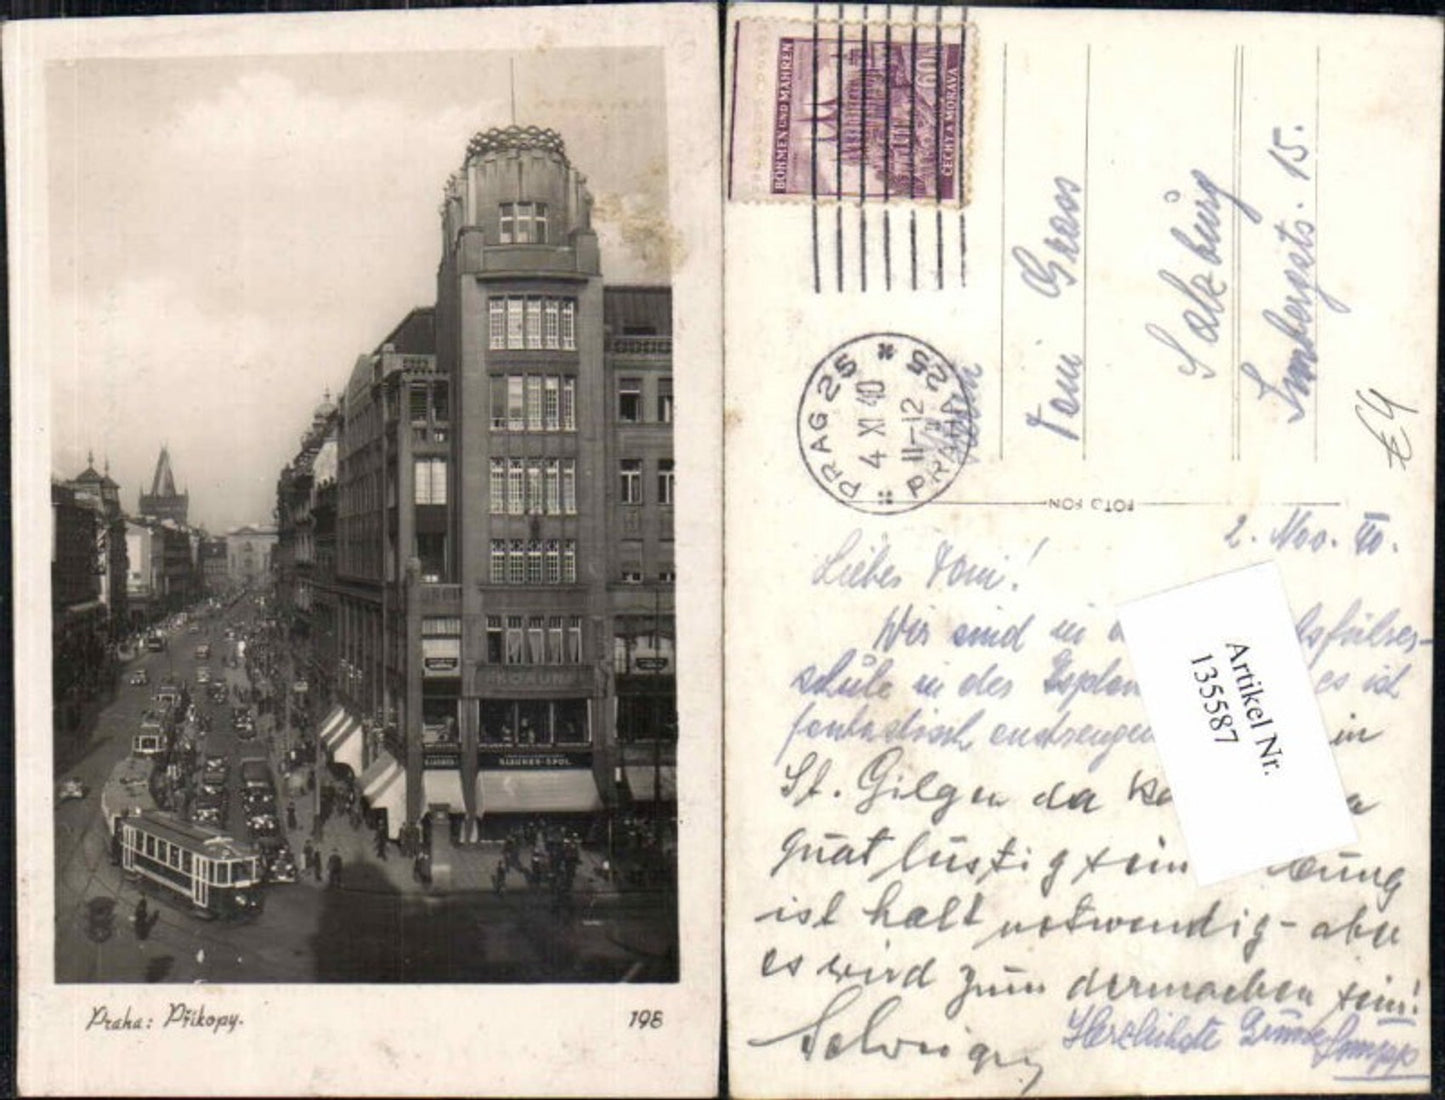 KORUNA
GLAUBER-SPOL.
Praha: Příkopy.
198
BÖHMEN UND MÄHREN
60h
ČECHY A MORAVA
PRAG 25
4 XI 40
11-12
PRAHA 25
Toni Grass
Salzburg
Imbergstr. 15.
€4
FOTO FON
2. Nov. 40.
Liebes Toni!
Wir sind in
schule in der es ist
fantastisch in
St. Gilgen da
guat lustig sein
ist halt notwendig - aber
es wird zum dermachen sein!
Herzlichste Grüsse
Artikel Nr.
135587